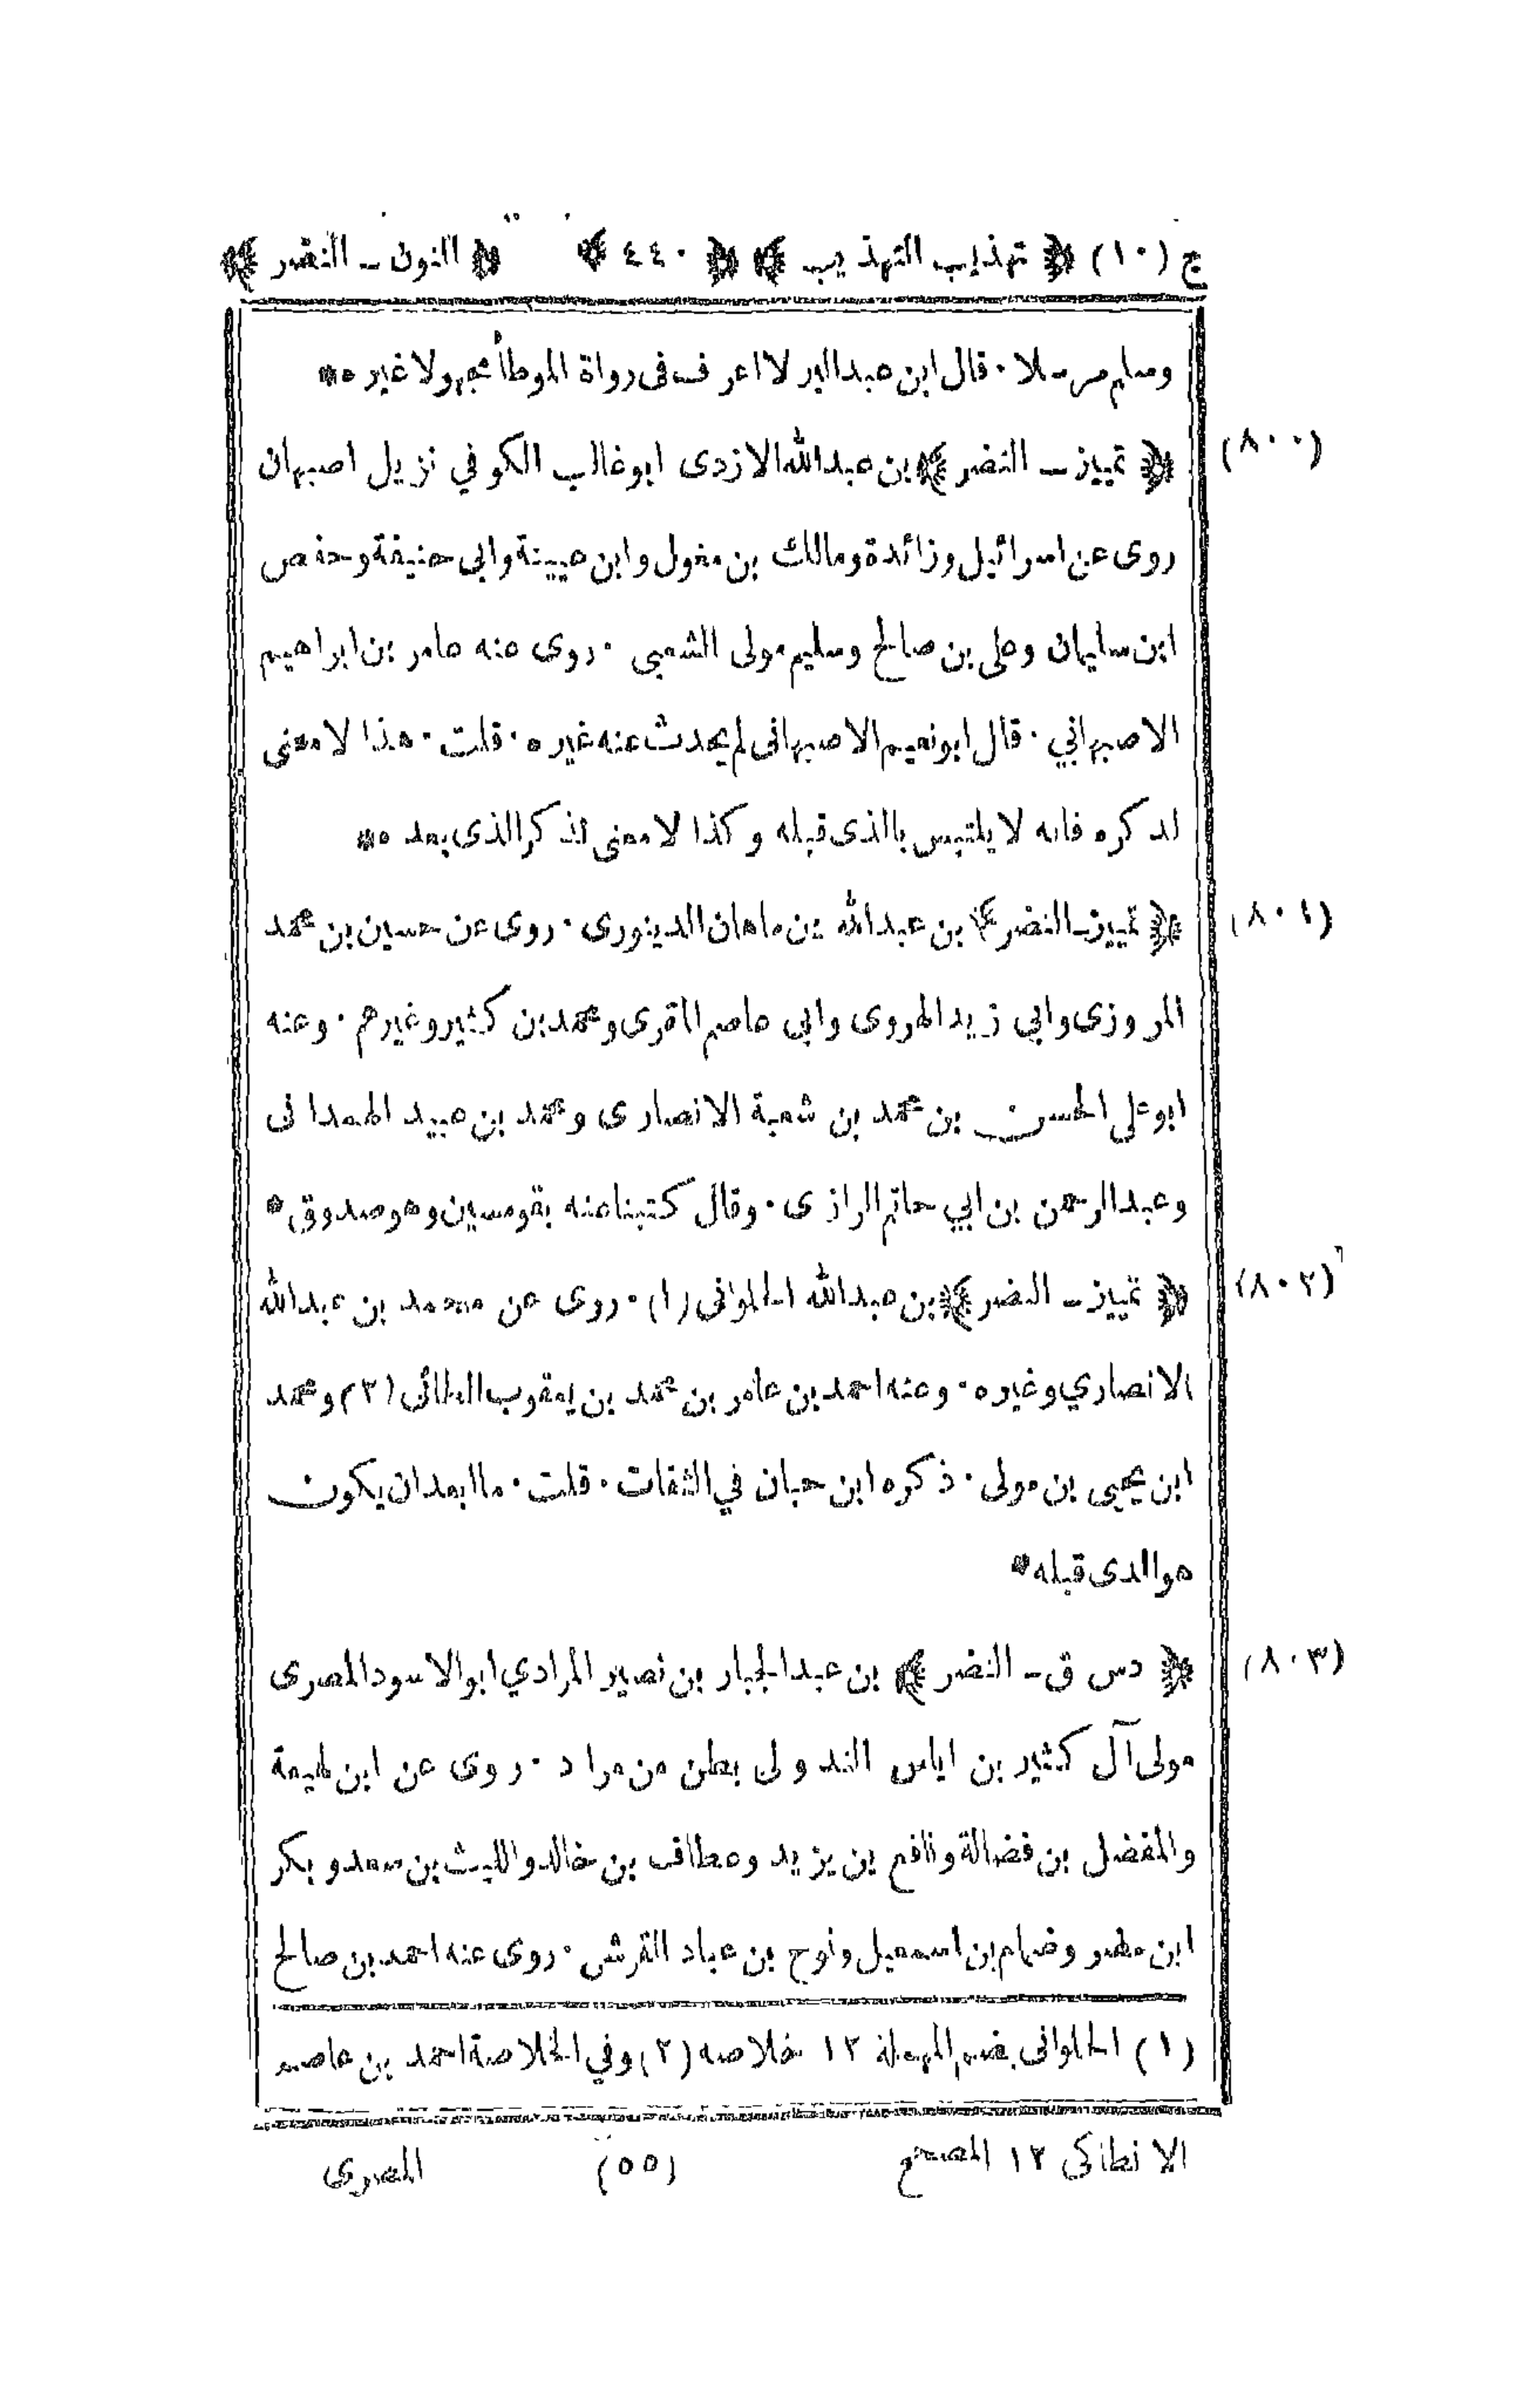 ج (١٠) ﴿ تهذيب التهذيب ﴾ ﴿ ٤٤٠ ﴾ ﴿ النون ـ النضر ﴾
وسلم مرسلا ٠ قال ابن عبدالبر لا اعرف فى رواة الموطأ مجهولا غيره *
(٨٠٠) ﴿ تمييز ـ النضر ﴾ بن عبدالله الازدى ابوغالب الكوفي نزيل اصبهان
روى عن اسرائيل وزائدة ومالك بن مغول وابن عيينة وابي حنيفة وحفص
ابن سليمان وعلى بن صالح وسليم مولى الشعبي ٠ روى عنه عامر بن ابراهيم
الاصبهاني ٠ قال ابونعيم الاصبهانى لم يحدث عنه غيره ٠ قلت ٠ هذا لا معنى
لذكره فانه لا يلتبس بالذى قبله وكذا لا معنى لذكر الذى بعده *
(٨٠١) ﴿ تمييز ـ النضر ﴾ بن عبدالله بن ماهان الدينورى ٠ روى عن حسين بن محمد
المروزى وابي زيد الهروى وابى عاصم المقرى ومحمد بن كثير وغيرهم ٠ وعنه
ابوعلى الحسن بن محمد بن شعبة الانصارى ومحمد بن عبيد الهمدانى
وعبدالرحمن بن ابي حاتم الرازى ٠ وقال كتبنا عنه بقومسين وهو صدوق *
(٨٠٢) ﴿ تمييز ـ النضر ﴾ بن عبدالله الحلوانى (١) ٠ روى عن محمد بن عبدالله
الانصاري وغيره ٠ وعنه احمد بن عامر بن محمد بن يعقوب الطائى (٢) ومحمد
ابن يحيى بن مولى ٠ ذكره ابن حبان في الثقات ٠ قلت ٠ ما ابعد ان يكون
هو الدى قبله *
(٨٠٣) ﴿ دس ق ـ النضر ﴾ بن عبدالجبار بن نصير المرادي ابوالاسود المصرى
مولى آل كثير بن اياس الندولى بطن من مراد ٠ روى عن ابن لهيعة
والمفضل بن فضالة ونافع بن يزيد وعطاف بن خالد والليث بن سعد وبكر
ابن مضر وضمام بن اسمعيل ونوح بن عباد القرشى ٠ روى عنه احمد بن صالح
(١) الحلوانى بضم المهملة ١٢ خلاصه (٢) وفي الخلاصة احمد بن عاصم
الانطاكى ١٢ المصحح (٥٥) المصرى